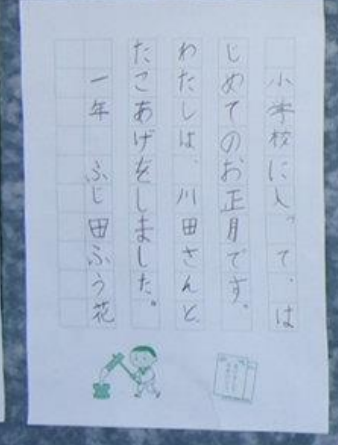 小学校に入って、は
じめてのお正月です。
わたしは、川田さんと、
たこあげをしました。
一年 ふじ田ふう花